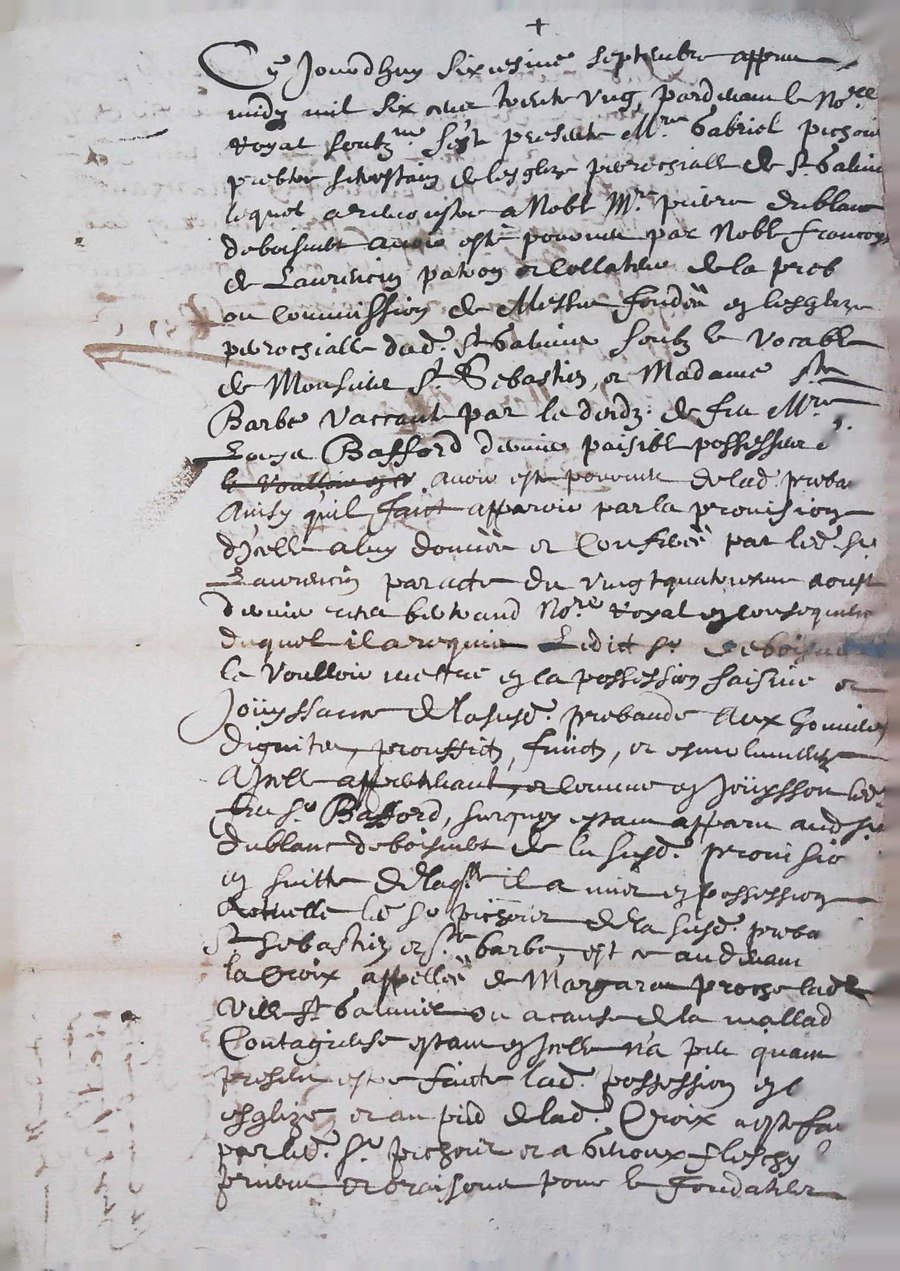 +
Ce Jourdhuy sixiesme septembre appres
midy mil six cens trente ung, pardevant le No.re
royal soubz.né s'est presenté M.re Gabriel pichon
prebtre secrestain de lesglize perrochialle de S.t Galmier
lequel a remonstré a Noble M.re pierre dublanc
deboisnet avoir esté pourveu par Noble francoys
de Laurencin patron et collateur de la preb
ou Commission de Messes fondée en lesglize
perrochialle dud. S.t Galmier soubz le vocable
de Monsieur S.t Sebastien, et Madame S.te
Barbe vaccant par le deces de feu M.re
Bafford dernier paisible possesseur d'
avoir esté pourveu de lad. preba
Ainsy quil faict apparoir par la provision
d'Icelle a luy donnée et Conferée par led. S.r
Laurencin par acte du vingtquatriesme aoust
dernier Bertrand No.re royal en consequence
duquel il a requis Ledict S.r deboisnet
le voulloir mettre en la possession saisine et
Jouyssance de la susd. prebande Aux honneurs
dignites, prouffictz, fruictz, et esmolumentz
a Icelle appartenant, et comme en Jouyssoit led.
feu S.r Bafford, surquoy estant apparu aud. S.r
dublanc deboisnet de la susd. provisio
en suitte de laq.lle il a mis en possession
Actuelle le S.r pichon de la susd. preba
S.t Sebastien et S.te Barbe, audevant
la Croix appellée de Margaron proche lad.
ville S.t Galmier ou a cause de la mallad
Contagieuse estant en Icelle n'a peu
esté faicte lad. possession en l
esglize et au pied de lad. Croix a esté fai
par led. S.r pichon et a Genoux
prieres et oraisons pour le fondateur